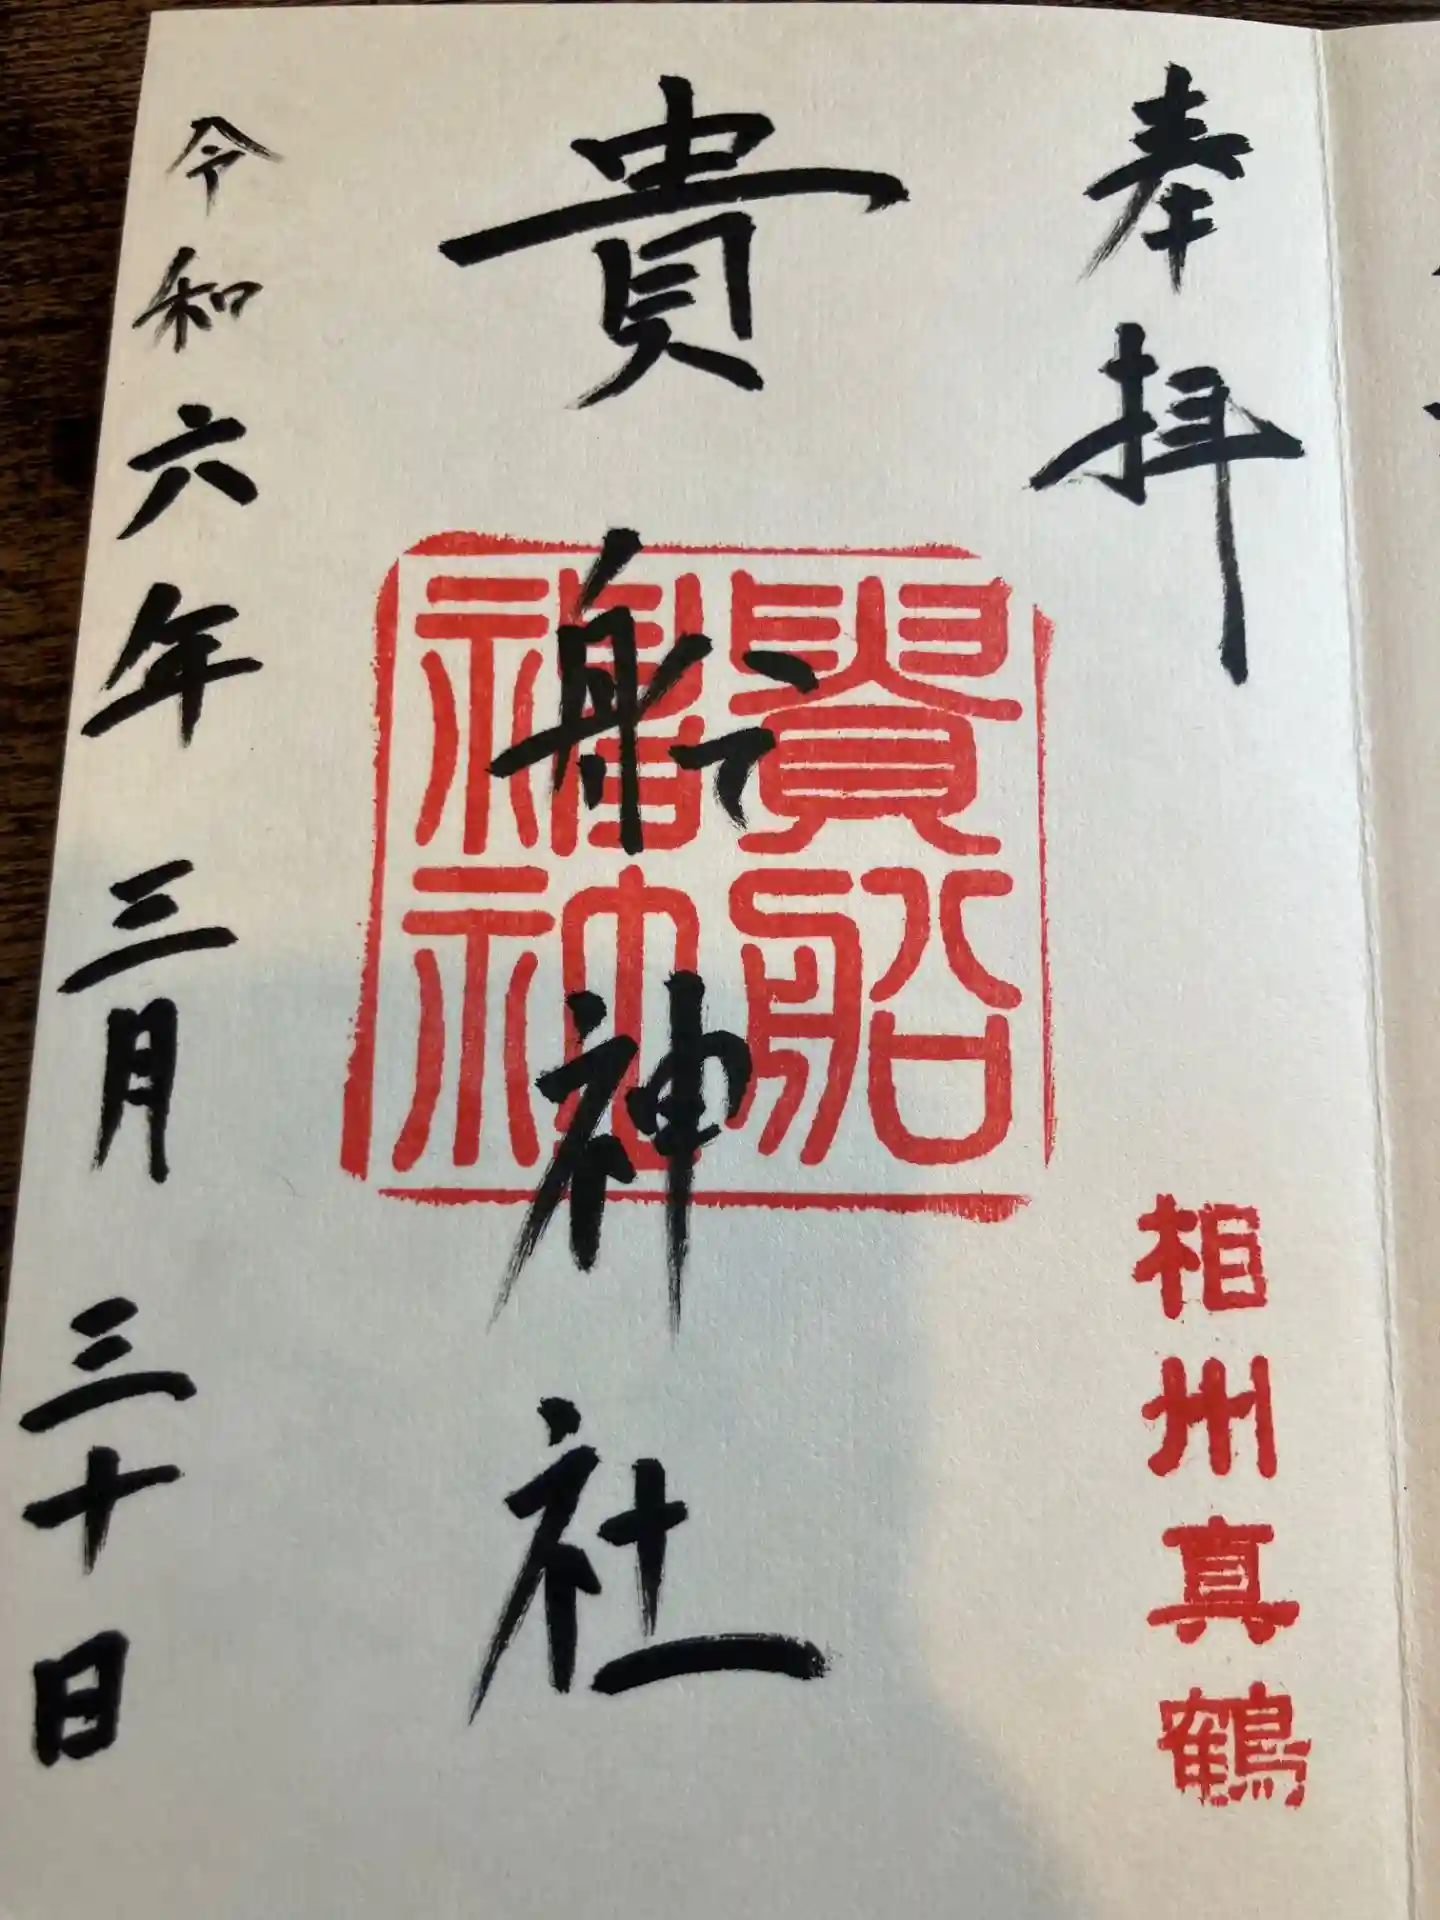 奉拝
相州真鶴
貴船神社
貴船
福神
令和六年三月三十日